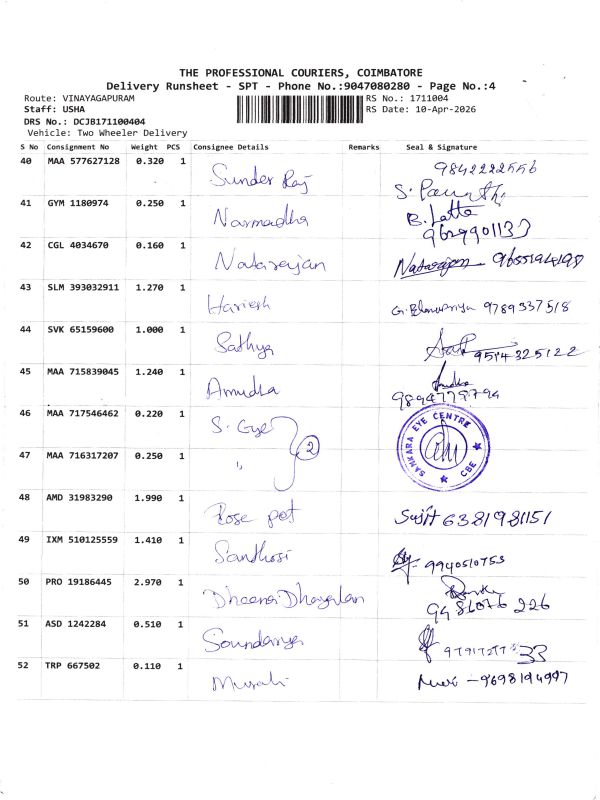 THE PROFESSIONAL COURIERS, COIMBATORE
Delivery Runsheet - SPT - Phone No.:9047080280 - Page No.:4
Route: VINAYAGAPURAM RS No.: 1711004
Staff: USHA RS Date: 10-Apr-2026
DRS No.: DCJB171100404
Vehicle: Two Wheeler Delivery
S No Consignment No Weight PCS Consignee Details Remarks Seal & Signature
40 MAA 577627128 0.320 1 Sunder Raj 9842222556
41 GYM 1180974 0.250 1 Narmadha 9629901133
42 CGL 4034670 0.160 1 Natarajan Natarajan 9655194198
43 SLM 393032911 1.270 1 Hariesh 9789337518
44 SVK 65159600 1.000 1 Sathya 9514325122
45 MAA 715839045 1.240 1 Amudha
46 MAA 717546462 0.220 1 S. Eye 2 SANKARA EYE CENTRE CBE
47 MAA 716317207 0.250 1 "
48 AMD 31983290 1.990 1 Rose pet Sujit 6381981151
49 IXM 510125559 1.410 1 Santhosi 9940510753
50 PRO 19186445 2.970 1 Dheena Dhayalan 9486076226
51 ASD 1242284 0.510 1 Soundarya
52 TRP 667502 0.110 1 Murali - 9698194997